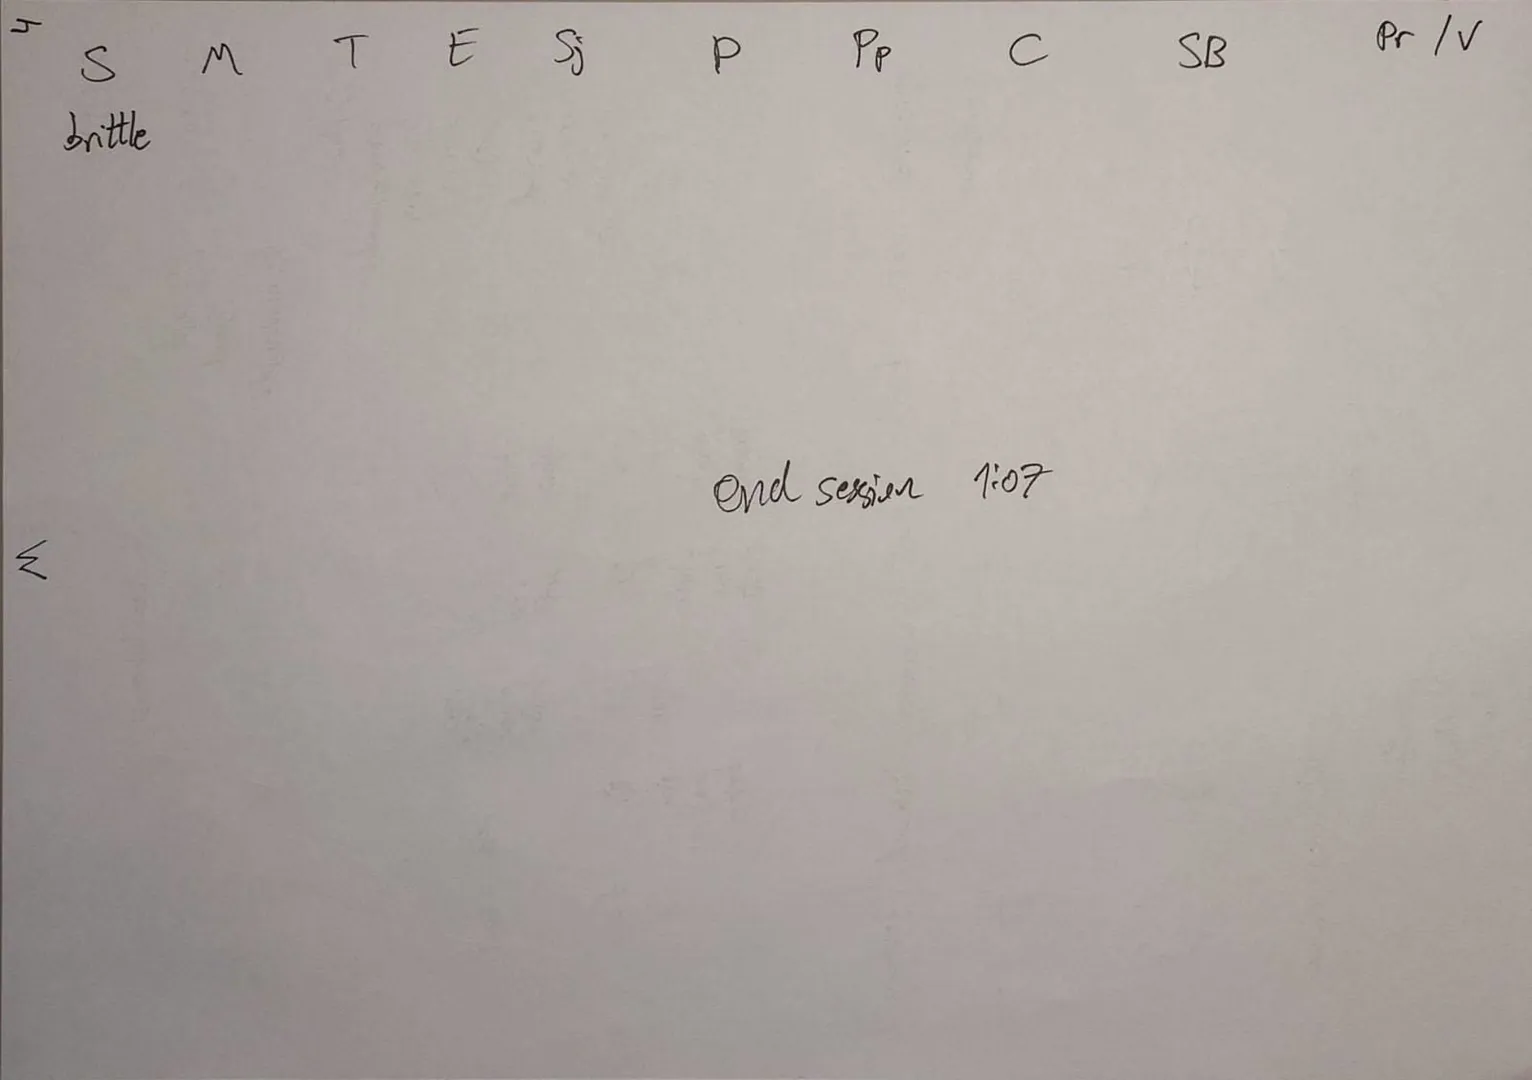 S M T E Sj P Pp C SB Pr / V
brittle
end session 1:07